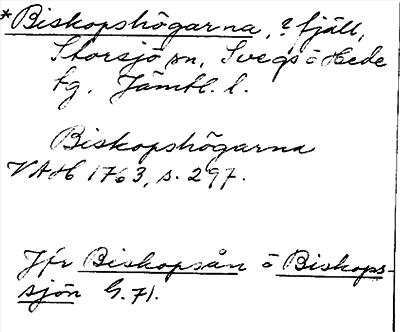 *Biskopshögarna, ? fjäll,
Storsjö sn, Svegs o Hede
tg, Jämtl. l.
Biskopshögarna
VAH 1763, s. 297.
Jfr Biskopsån o Biskops-
sjön G. 71.